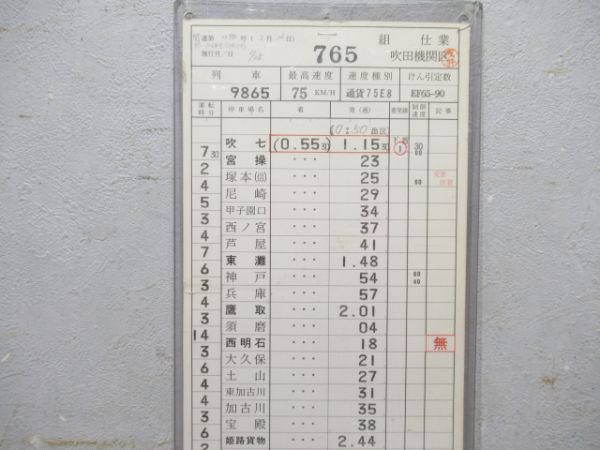 一 組 仕業
765 吹田機関区
列車 最高速度 速度種別 けん引定数
9865 75 KM/H 通貨75E8 EF65-90
運転時分 停車場名 着 発(通) 着発線 制限速度 記事
0:30 出区
吹七 (0.55 30) 1.15 30 1 30
7 30 60
宮操 ・・・ 23
2
塚本(信) ・・・ 25 60
4
尼崎 ・・・ 29
5
甲子園口 ・・・ 34
3
西ノ宮 ・・・ 37
4
芦屋 ・・・ 41
7
東灘 ・・・ 1.48
6
神戸 ・・・ 54 60
3 40
兵庫 ・・・ 57
4
鷹取 ・・・ 2.01
3
須磨 ・・・ 04
14
西明石 ・・・ 18 無
3
大久保 ・・・ 21
6
土山 ・・・ 27
4
東加古川 ・・・ 31
4
加古川 ・・・ 35
3
宝殿 ・・・ 38
6
姫路貨物 ・・・ 2.44
2